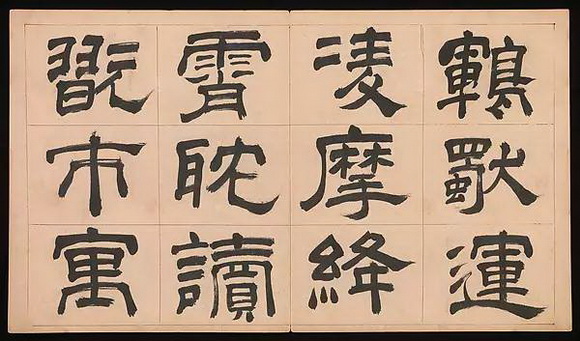 鶤獨運
凌摩絳
霄耽讀
翫市寓